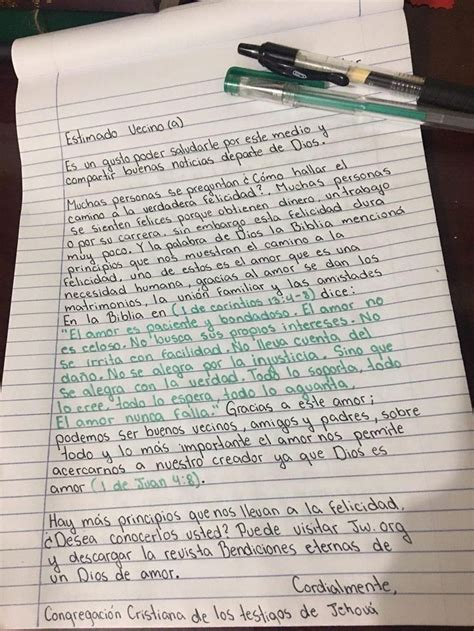 Estimado Vecino (a)
Es un gusto poder saludarle por este medio y
compartir buenas noticias departe de Dios.
Muchas personas se preguntan ¿Cómo hallar el
camino a la verdadera felicidad?. Muchas personas
se sienten felices porque obtienen dinero, un trabajo
o por su carrera, sin embargo esta felicidad dura
muy poco. Y la palabra de Dios la Biblia menciona
principios que nos muestran el camino a la
felicidad, uno de estos es el amor que es una
necesidad humana, gracias al amor se dan los
matrimonios, la unión familiar y las amistades
En la Biblia en (1 de corintios 13:4-8) dice:
"El amor es paciente y bondadoso. El amor no
es celoso. No busca sus propios intereses. No
se irrita con facilidad. No lleva cuenta del
daño. No se alegra por la injusticia. Sino que
se alegra con la verdad. Todo lo soporta, todo
lo cree, todo lo espera, todo lo aguanta.
El amor nunca falla." Gracias a este amor;
podemos ser buenos vecinos, amigos y padres, sobre
todo y lo más importante el amor nos permite
acercarnos a nuestro creador ya que Dios es
amor (1 de Juan 4:8).
Hay más principios que nos llevan a la felicidad.
¿Desea conocerlos usted? Puede visitar Jw.org
y descargar la revista Bendiciones eternas de
un Dios de amor.
Cordialmente,
Congregación Cristiana de los testigos de Jehová